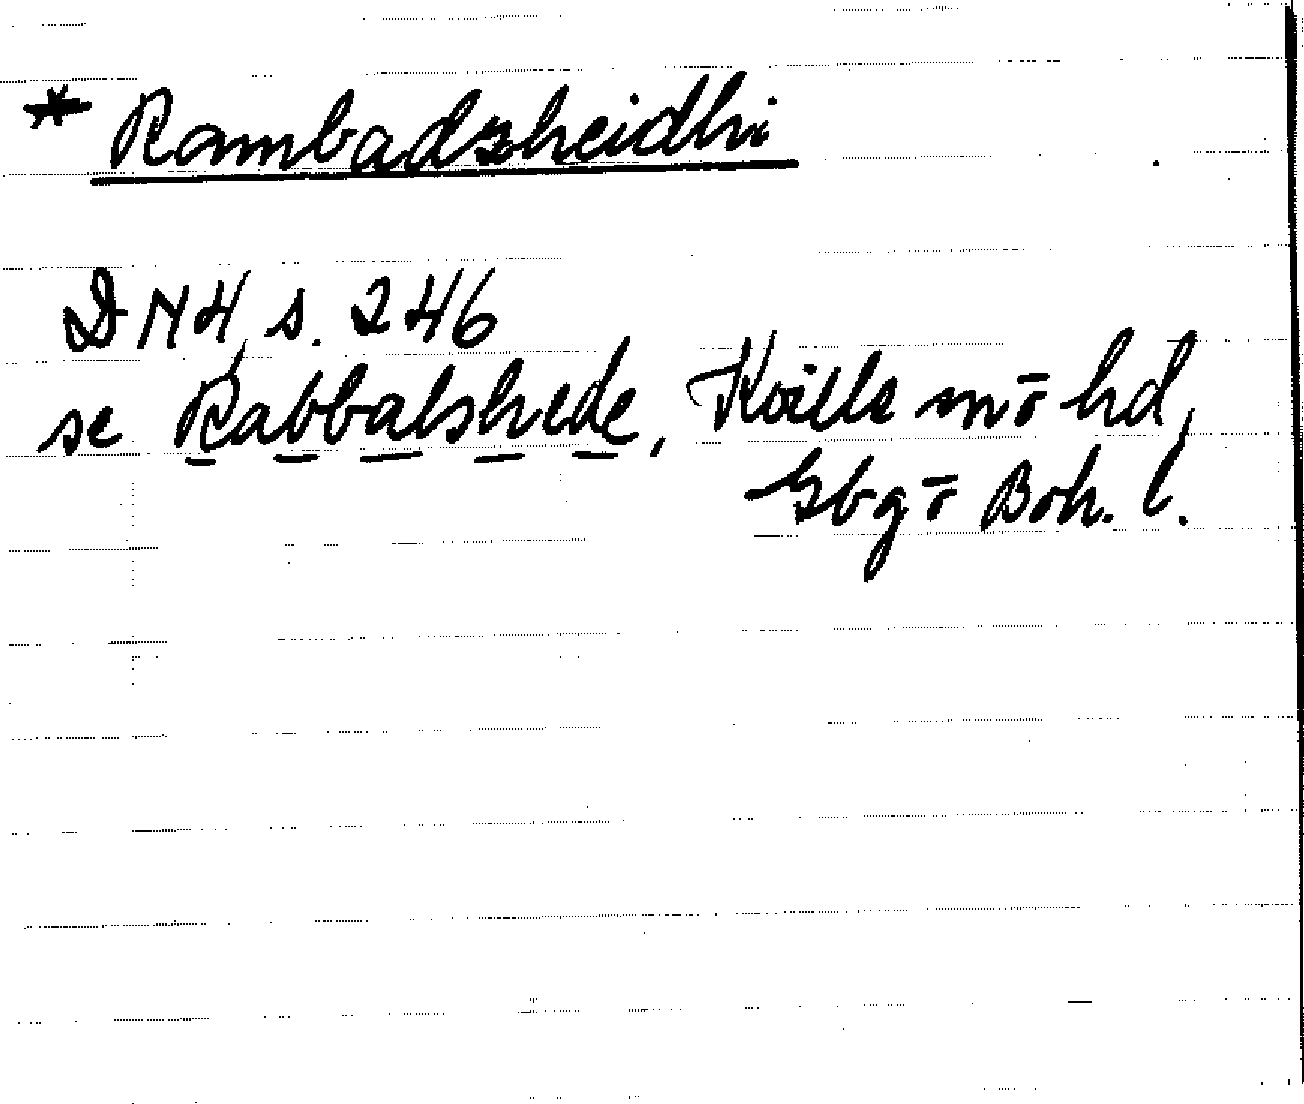 * Rambadzheidhi
DN4, s. 246
se Rabbalshede, Kville snö hd,
Gbg o Boh. l.